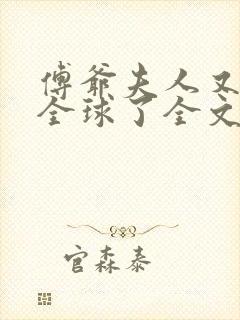 傅爺夫人又
全球了全文
官森泰